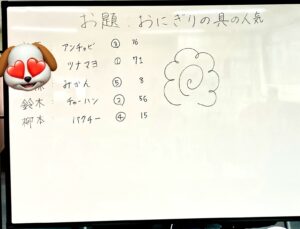 お題:おにぎりの具の人気
アンチョビ ③ 16
ツナマヨ ① 71
みかん ⑤ 8
鈴木:チャーハン ② 56
柳本:パクチー ④ 15